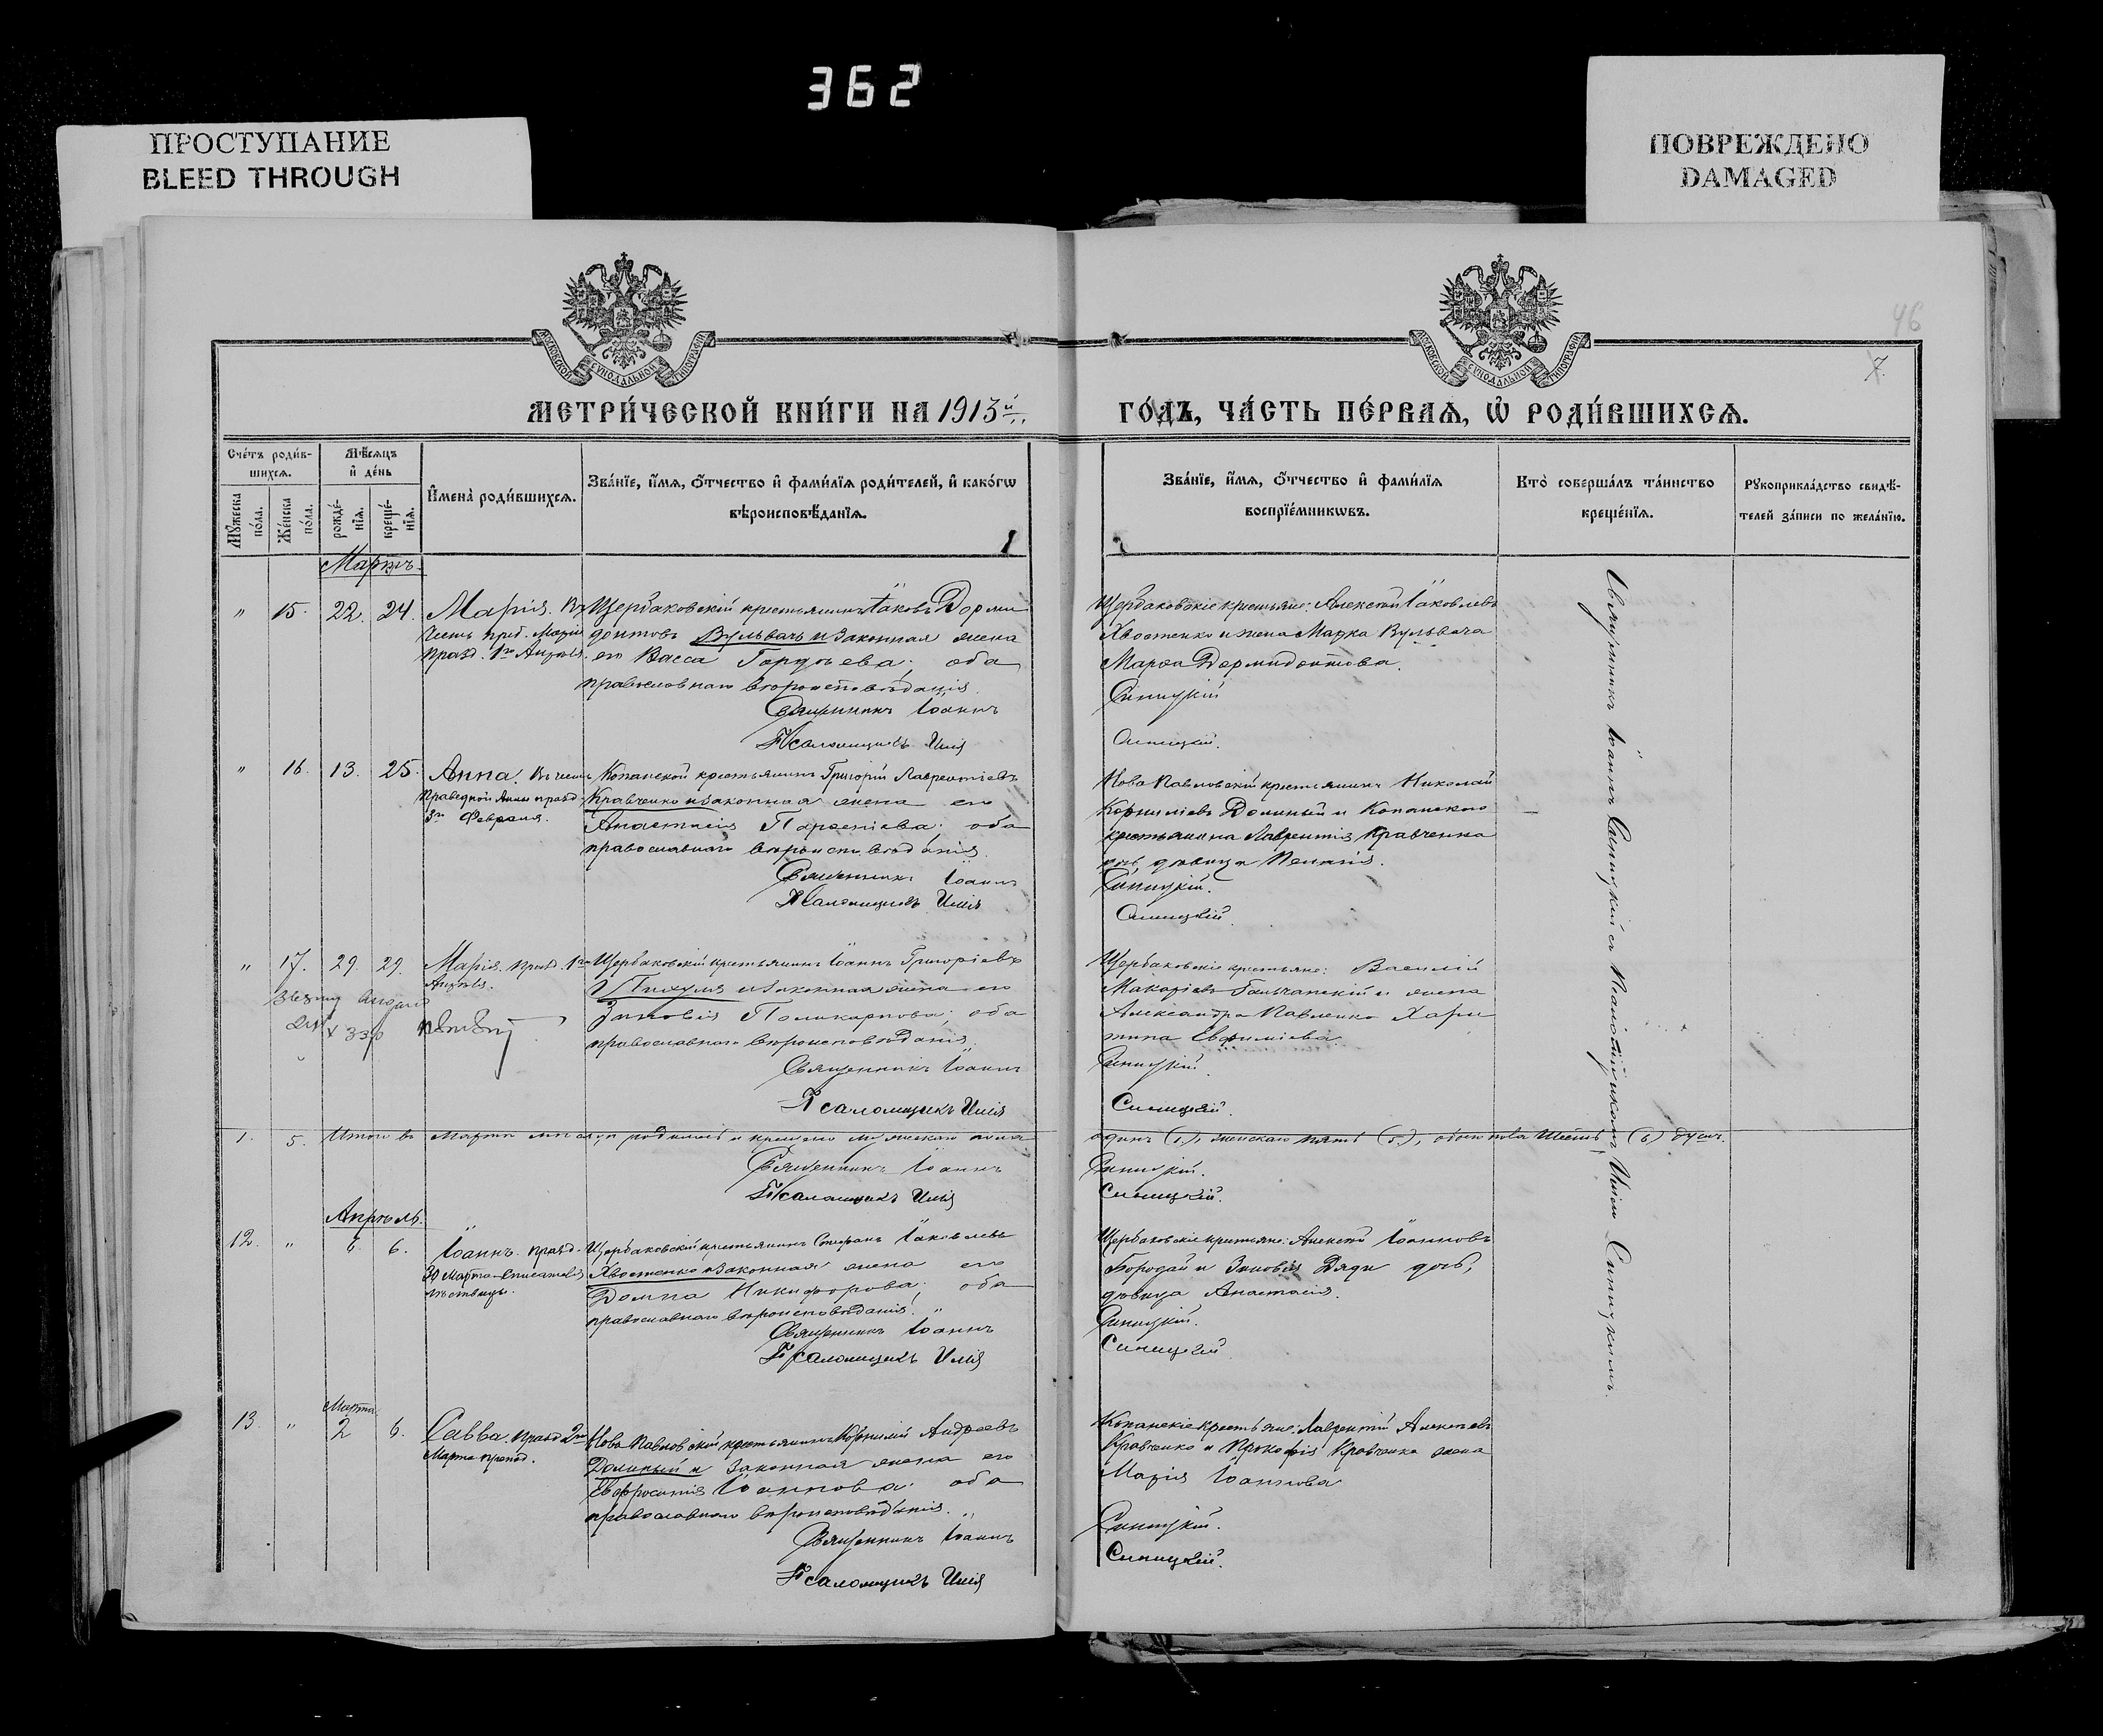 362
ПРОСТУПАНИЕ
BLEED THROUGH
ПОВРЕЖДЕНО
DAMAGED
46
7.
МОСКОВСКОЙ СѴНОДАЛЬНОЙ ТИПОГРАФІИ
МОСКОВСКОЙ СѴНОДАЛЬНОЙ ТИПОГРАФІИ
МЕТРИ́ЧЕСКОЙ КНИ́ГИ НА 1913й
ГО́ДЪ, ЧА́СТЬ ПЕ́РВАѦ, Ѡ҆ РОДИ́ВШИХСѦ.
Сче́тъ роди́в-
шихсѧ.
Мѣ́сѧцъ
и҆ де́нь
Мꙋ́жеска по́ла.
Же́нска по́ла.
рожде́-нїѧ.
креще́-нїѧ.
И҆мена̀ роди́вшихсѧ.
Зва́нїе, и҆́мѧ, ѻ҆́тчество и҆ фами́лїѧ роди́телей, и҆ како́гѡ
вѣроисповѣ́данїѧ.
Зва́нїе, и҆́мѧ, ѻ҆́тчество и҆ фами́лїѧ
воспрїе́мникѡвъ.
Кто̀ соверша́лъ та́инство
креще́нїѧ.
Рꙋкоприкла́дство свидѣ́-
телей за́писи по жела́нїю.
Мартъ.
" 15. 22. 24. Марія. Въ
честь прод. Маріи
Празд. 1го Апрѣля.
Щербаковскій крестьянинъ Іаковъ Дорми
донтовъ Вульвачъ и законная жена
его Васса Гордѣева; оба
православнаго вѣроисповѣданія.
Священникъ Іоаннъ
Псаломщикъ Илія
Щербаковскіе крестьяне: Алексѣй Іаковлевъ
Хвостенко и жена Марка Вульвача
Марѳа Дормидонтова.
Синицкій
Синицкій.
" 16. 13. 25. Анна. Въ честь
Праведной Анны празд.
3го Февраля.
Копанской крестьянинъ Григорій Лаврентіевъ
Кравченко и законная жена его
Анастасія Парѳеніева; оба
православнаго вѣроисповѣданія.
Священникъ Іоаннъ
Псаломщикъ Илія
Ново Павловскій крестьянинъ Николай
Корниліевъ Долиный и Копанского
крестьянина Лаврентія Кравченка
дѣвица Пелагія.
Синицкій.
Синицкій.
" 17. 29. 29. Марія. Празд. 1го
Апрѣля.
Щербаковскій крестьянинъ Іоаннъ Григоріевъ
Пихуля и законная жена его
Зиновія Поликарпова; оба
православнаго вѣроисповѣданія.
Священникъ Іоаннъ
Псаломщикъ Илія
Щербаковскіе крестьяне: Василій
Макаріевъ Гальчанскій и жена
Александра Павленко Хари
тина Евфиміева.
Синицкій.
Синицкій.
1. 5. Итого въ Мартѣ мѣсяцѣ родилось и крещено мужескаго пола
одинъ (1), женскаго пять (5), обоего пола шесть (6) душъ.
Священникъ Іоаннъ
Псаломщикъ Илія
Синицкій.
Синицкій.
Апрѣль.
12. " 6. 6. Іоаннъ. празд.
30 Марта Списателя
лѣствицы.
Щербаковскій крестьянинъ Стефанъ Іаковлевъ
Хвостенко и законная жена его
Домна Никифорова; оба
православнаго вѣроисповѣданія.
Священникъ Іоаннъ
Псаломщикъ Илія
Щербаковскіе крестьяне: Алексѣй Іоанновъ
Бородай и Зиновія Дяди дочь,
дѣвица Анастасія.
Синицкій.
Синицкій
Марта
13. " 2 6. Савва. Празд 2го
Марта препод.
Ново Павловскій крестьянинъ Корнилій Андреевъ
Долиный и законная жена его
Евфросинія Іоаннова; оба
православнаго вѣроисповѣданія.
Священникъ Іоаннъ
Псаломщикъ Илія
Копанскіе крестьяне: Лаврентій Алексѣевъ
Кравченко и Прокофія Кравченка жена
Марія Іоаннова
Синицкій.
Синицкій.
Священникъ Іоаннъ Синицкій съ Псаломщикомъ Иліею Синицкимъ.